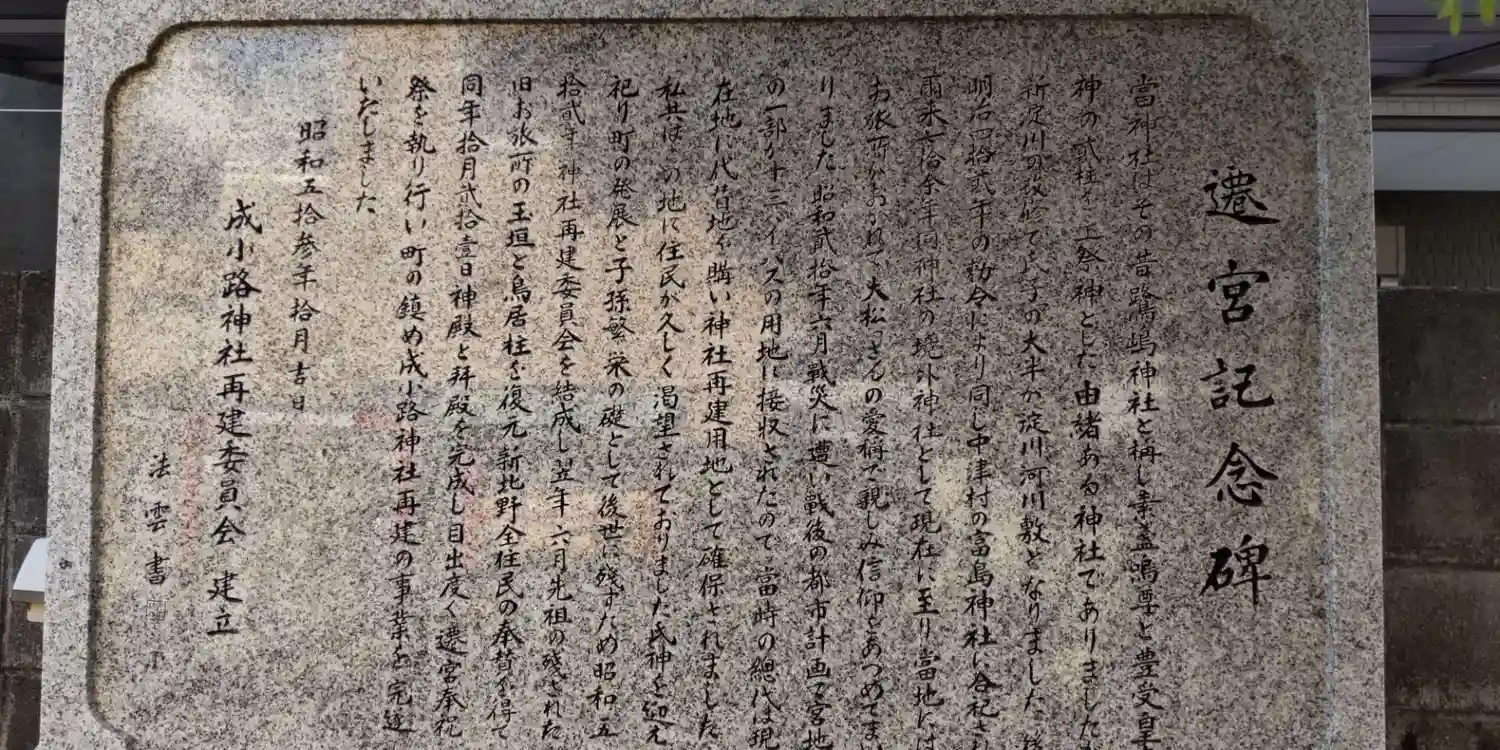 遷宮記念碑
當神社はその昔鷺嶋神社と稱し素盞嗚尊と豊受皇
神の弐柱を主祭神とした由緒ある神社でありましたが
新淀川の改修で氏子の大半が淀川河川敷となりました
明治四拾弐年の勅令により同じ中津村の富島神社に合祀され
爾来六拾余年同神社の境外神社として現在に至り當地には
お旅所がおかれて大松さんの愛稱で親しみ信仰をあつめてまい
りました 昭和弐拾年六月戰災に遭い戰後の都市計画で宮地
の一部が十三バイパスの用地に接収されたので當時の總代は現
在地に代替地を購い神社再建用地として確保されました
私共はこの地に住民が久しく渇望されておりました氏神を迎え
祀り町の発展と子孫繁栄の礎として後世に残すため昭和五
拾弐年神社再建委員会を結成し翌年六月先祖の残された
旧お旅所の玉垣と鳥居柱を復元新北野全住民の奉賛を得て
同年拾月弐拾壹日神殿と拝殿を完成し目出度く遷宮奉祝
祭を執り行い町の鎮め成小路神社再建の事業を完遂
いたしました
昭和五拾参年拾月吉日
成小路神社再建委員会 建立
法雲書